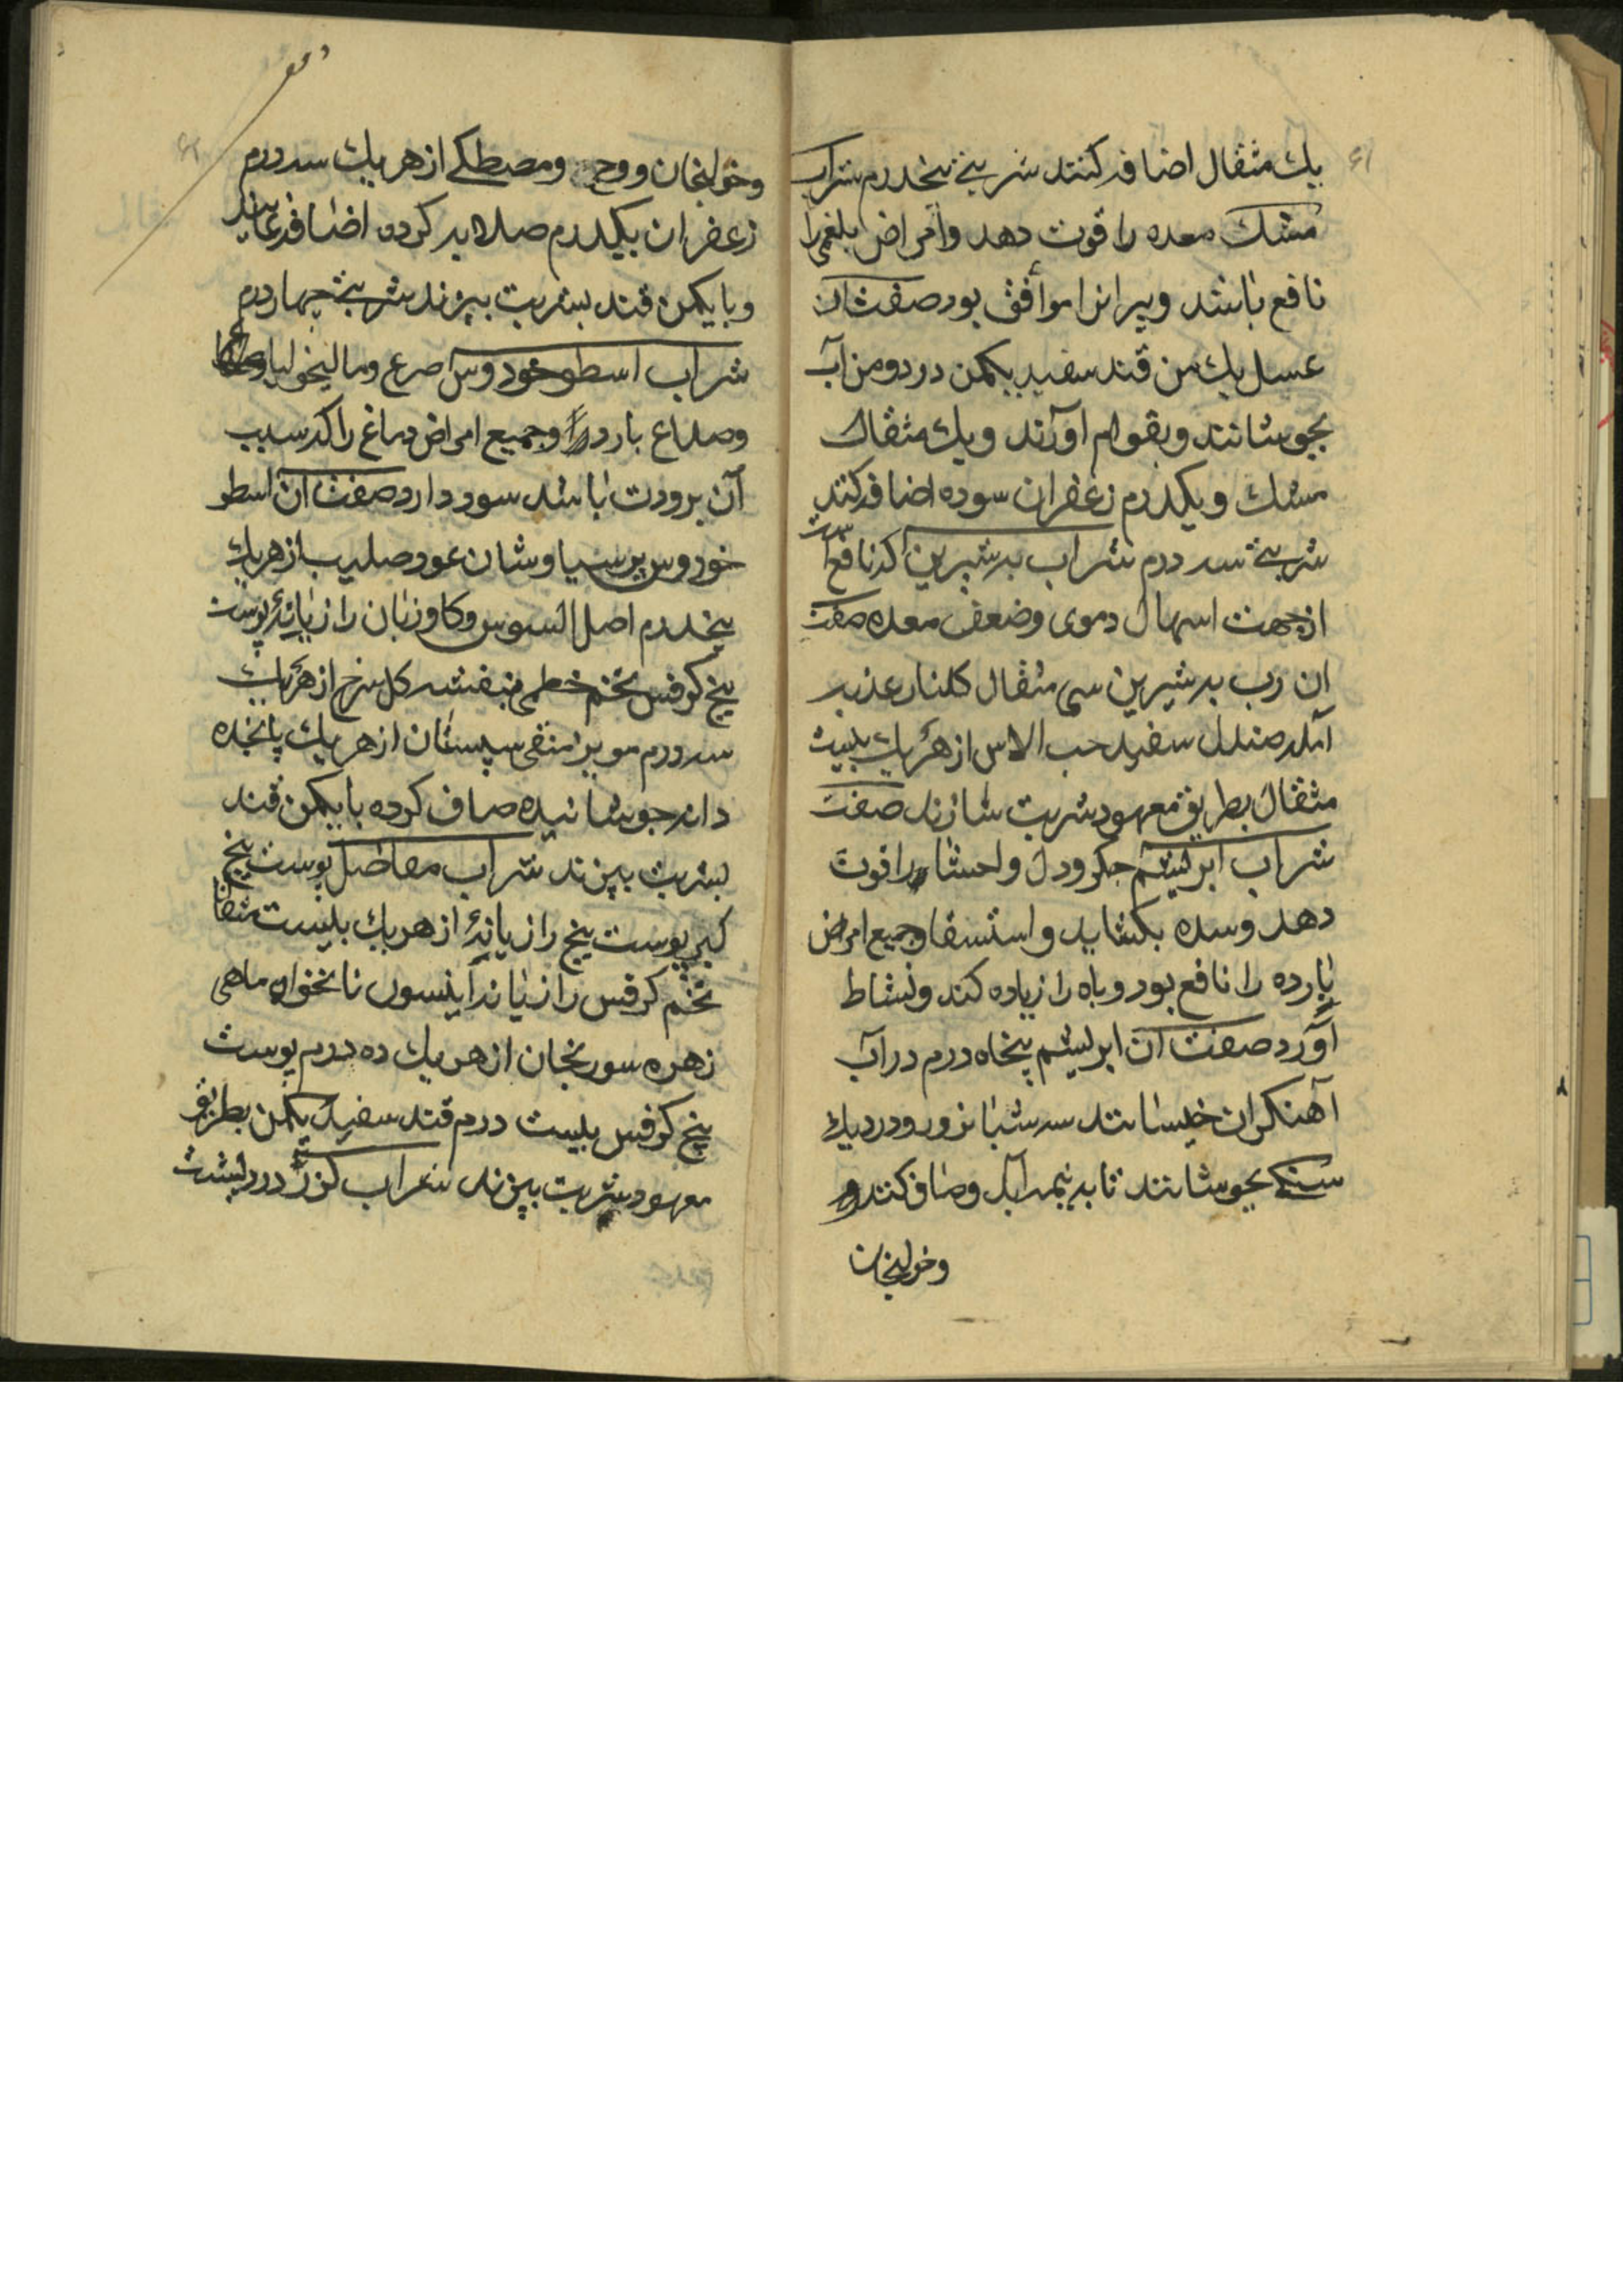 یك مثقال اضافه کنند شربتی پنجدرم شراب
مشك معده را قوت دهد وامراض بلغمی را
نافع باشد وپیرانرا موافق بود صفت ان
عسل یك من قند سفید یکمن در دو من آب
بجوشانند وبقوام اورند ویك مثقال
مشك ویکدرم زعفران سوده اضافه کنند
شربتی سه درم شراب به شیرین که نافع است
ازجهت اسهال دموی وضعف معده صفت
ان رب به شیرین سی مثقال کلنار عذبه
آمله صندل سفید حب الاس از هر یك بیست
مثقال بطریق معهود شربت سازند صفت
شراب ابریشم جکر ودل واحشا را قوت
دهد وسده بکشاید واستسقا وجمیع امراض
بارده را نافع بود وباه را زیاده کند ونشاط
آورد صفت ان ابریشم پنجاه درم در آب
آهنکران خیسانند سه شبانروز ودر دیك
سنکی بجوشانند تا به نیمه آید وصاف کنند و
وخولنجان
وخولنجان ووج ومصطکی از هر یك سه درم
زعفران یکدرم صلایه کرده اضافه نمایند
وبا یکمن قند بشربت بپزند شربتی چهار درم
شراب اسطوخودوس صرع ومالیخولیا
وصداع بارد را وجمیع امراض دماغ را که سبب
آن برودت باشد سود دارد صفت ان اسطو
خودوس پرسیاوشان عود صلیب از هر یك
پنجدرم اصل السوس وکاوزبان رازیانهٔ پوست
بیخ کرفس تخم خطمی بنفشه کل سرخ از هر یك
سه درم مویز منقی سپستان از هر یك پانجده
دانه جوشانیده صاف کرده با یکمن قند
بشربت بپزند شراب مفاصل پوست بیخ
کبر پوست بیخ رازیانهٔ از هر یك بیست مثقال
تخم کرفس رازیانه انیسون نانخواه ماهی
زهره سورنجان از هر یك ده درم پوست
بیخ کرفس بیست درم قند سفید یکمن بطریق
معهود شربت بپزند شراب کزر درد پشت